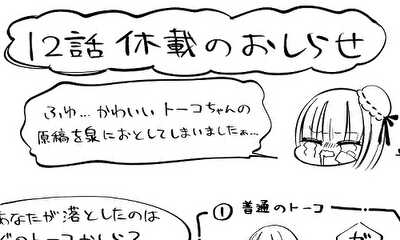 12話 休載のおしらせ
ふゆ…かわいいトーコちゃんの
原稿を泉におとしてしまいましたぁ…
あなたが落としたのは
① 普通のトーコ